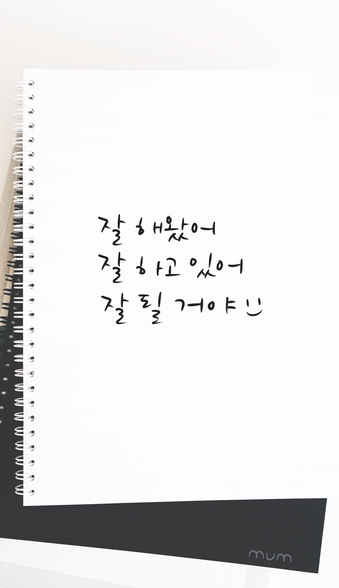 잘 해왔어
잘 하고 있어
잘 될 거야 :)
mum